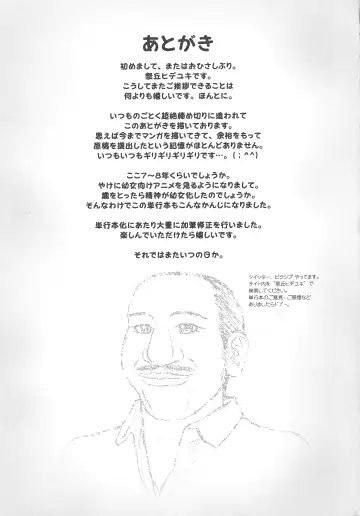 あとがき
初めまして、またはおひさしぶり。
祭丘ヒデユキです。
こうしてまたご挨拶できることは
何よりも嬉しいです。ほんとに。
いつものごとく超絶締め切りに追われて
このあとがきを描いております。
思えば今までマンガを描いてきて、余裕をもって
原稿を提出したという記憶がほとんどありません。
いつもいつもギリギリギリギリです…。(；^^)
ここ7～8年くらいでしょうか。
やけに幼女向けアニメを見るようになりまして。
歳をとったら精神が幼女化したのでしょうか。
そんなわけでこの単行本もこんなかんじになりました。
単行本化にあたり大量に加筆修正を行いました。
楽しんでいただけたら嬉しいです。
それではまたいつの日か。
ツイッター、ピクシブやってます。
サイト内を"祭丘ヒデユキ"で
検索してください。
単行本のご意見・ご感想など
ありましたらﾄﾞｿﾞｰ。